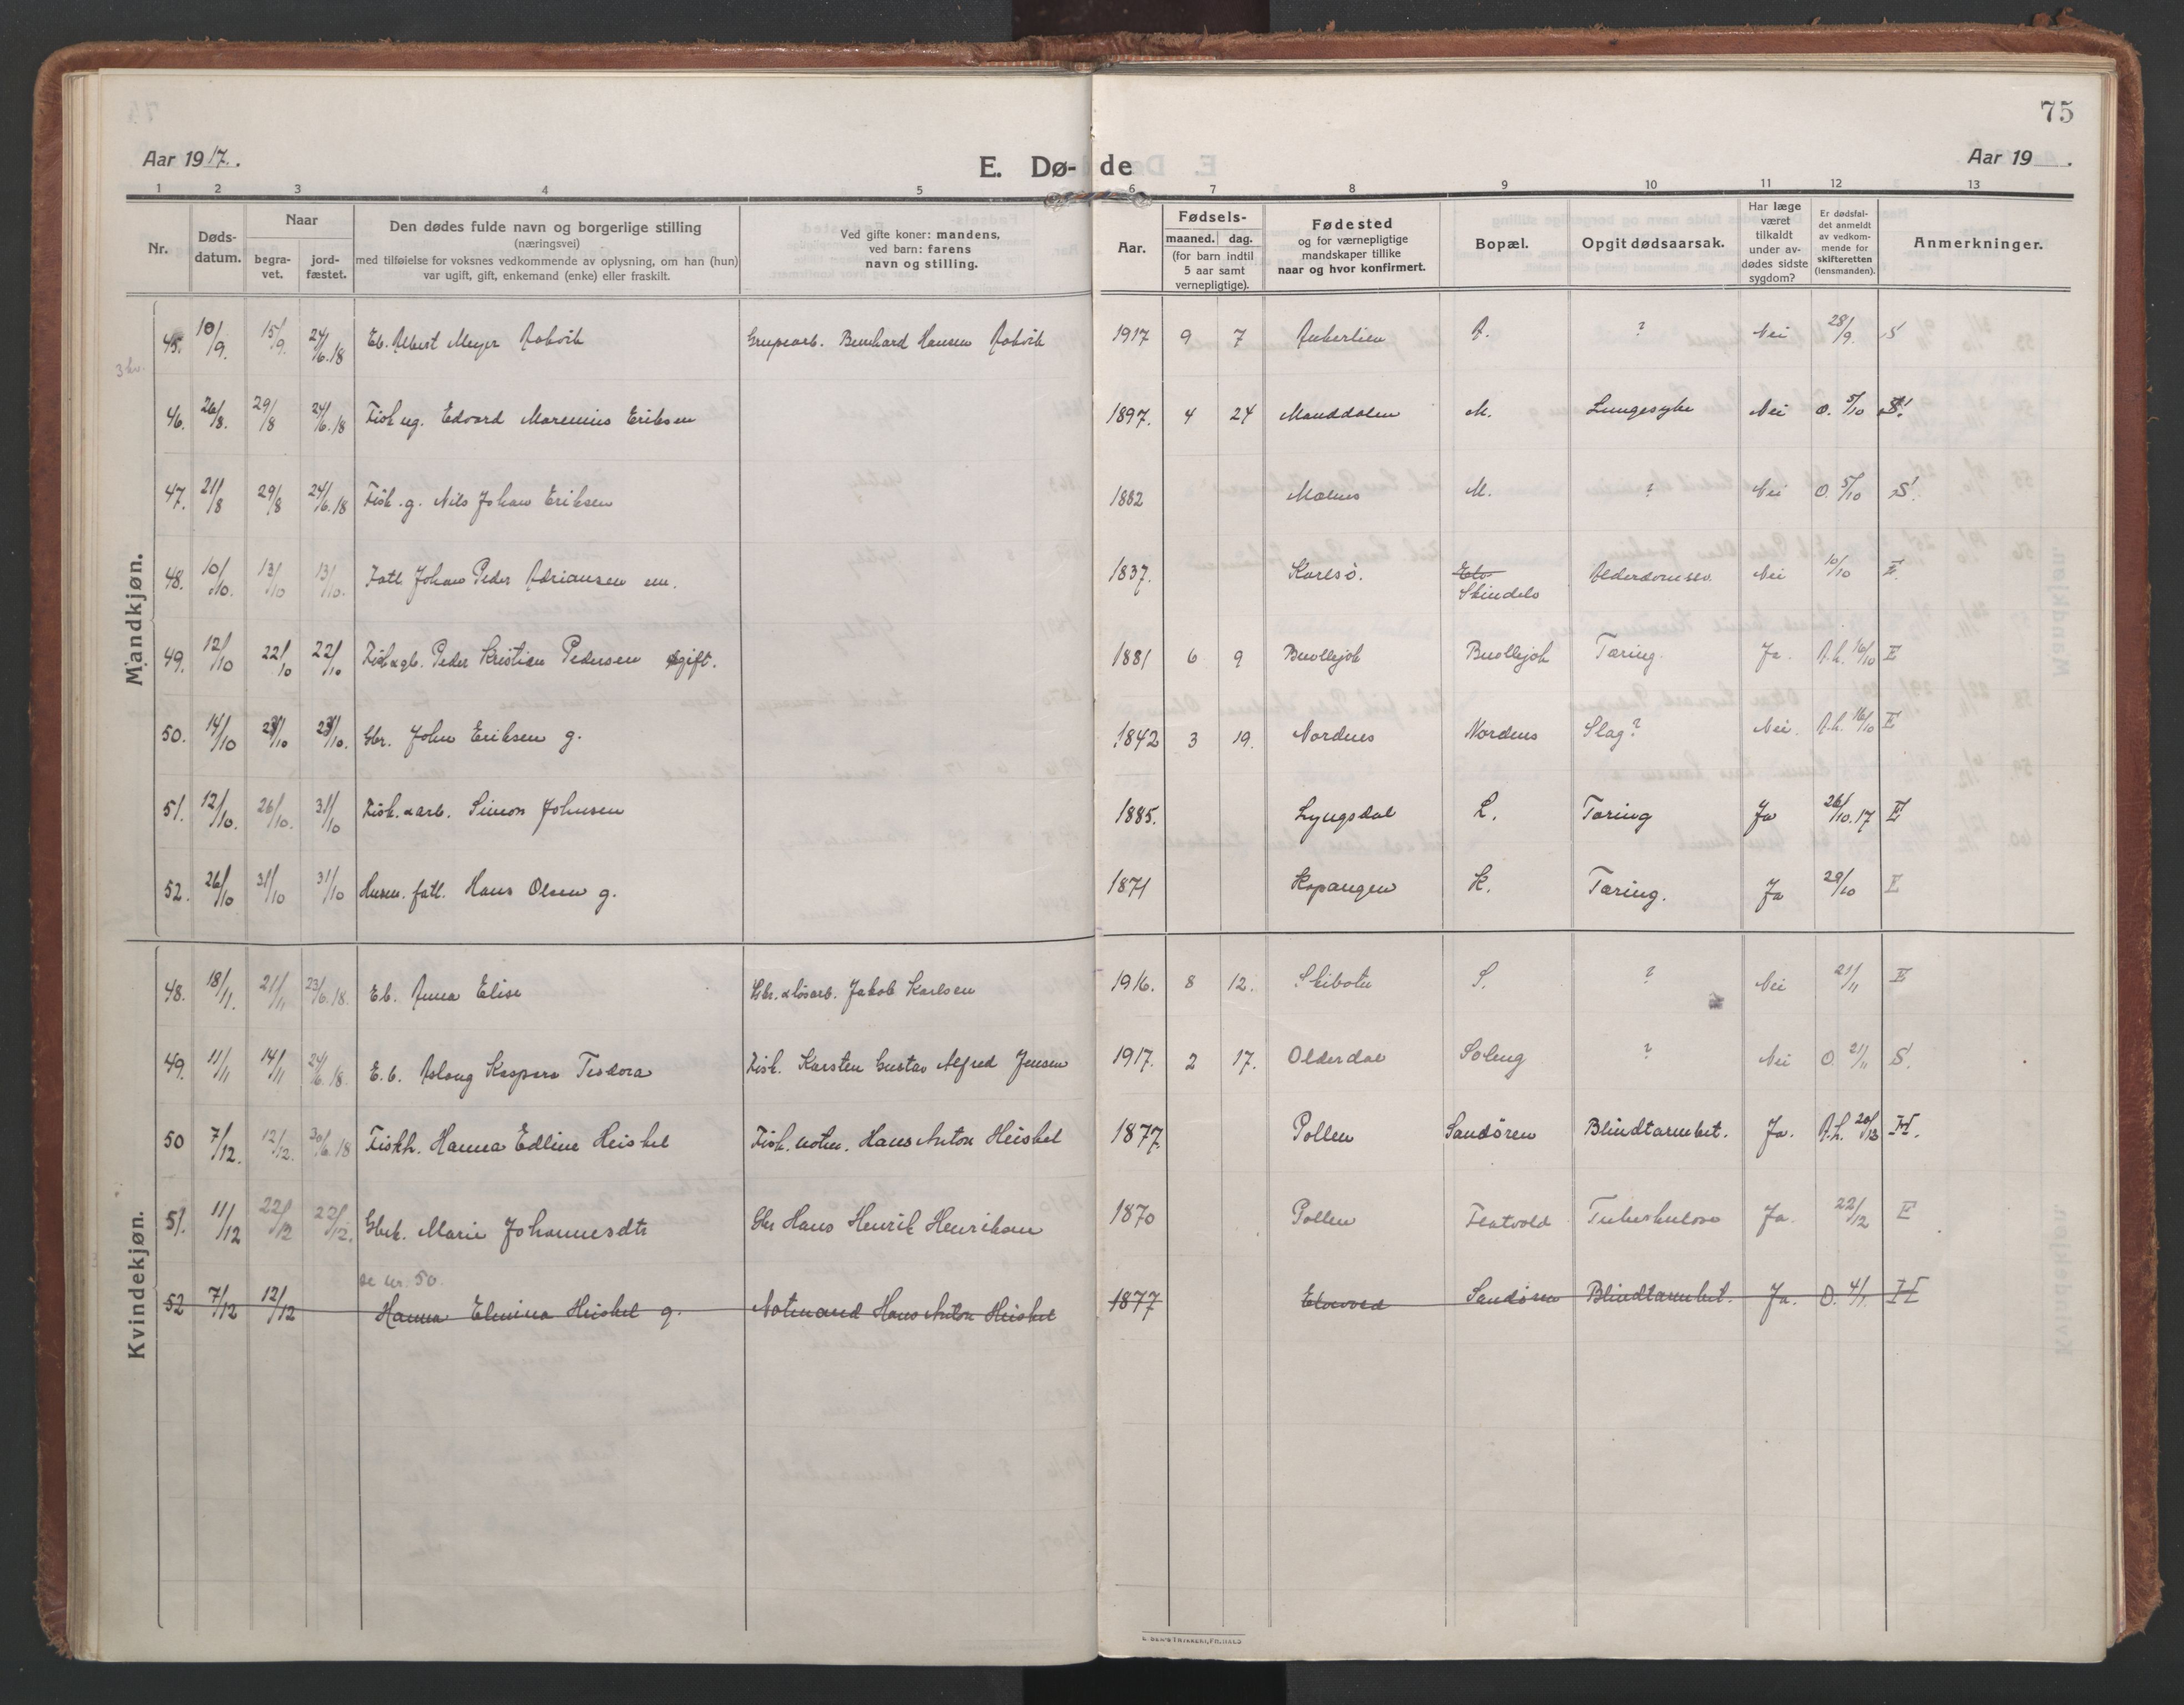 75
Aar 1917.
E. Dø- de
Aar 19 .
1 2 3 4 5 6 7 8 9 10 11 12 13
Nr.
Døds-
datum.
Naar
begra-
vet.
jord-
fæstet.
Den dødes fulde navn og borgerlige stilling
(næringsvei)
med tilføielse for voksnes vedkommende av oplysning, om han (hun)
var ugift, gift, enkemand (enke) eller fraskilt.
Ved gifte koner: mandens,
ved barn: farens
navn og stilling.
Aar.
Fødsels-
maaned. dag.
(for barn indtil
5 aar samt
vernepligtige).
Fødested
og for værnepligtige
mandskaper tillike
naar og hvor konfirmert.
Bopæl.
Opgit dødsaarsak.
Har læge
været
tilkaldt
under av-
dødes sidste
sygdom?
Er dødsfal-
det anmeldt
av vedkom-
mende for
skifteretten
(lensmanden).
Anmerkninger.
Mandkjøn.
45. 10/9. 15/9. 24/6.18 Eb. Albert Meyer Aabvik Grupearb. Bernhard Hansen Aabvik 1917 9 7 A. ? Nei 28/9. S
46. 26/8. 29/8 24/6.18 Fisk ug. Edvard Marenius Eriksen 1897. 4 24 Manddalen M. Lungesyke Nei O. 5/10 S.
47. 21/8 29/8 24/6.18 Fisk. g. Nils Johan Eriksen 1882 M. ? Nei O. 5/10 S.
48. 10/10. 13/10 13/10. Fatl Johan Peder Adriansen em. 1837. Karlsö. Skindelv Alderdomssv. Nei 10/10 E.
49. 12/10 22/10 22/10 Peder Kristian Pedersen gift. 1881 6 9 Buollejok Buollejok Tæring. Ja. A.h. 16/10 E
50. 14/10 23/10 23/10. Gbr. John Eriksen g. 1842 3 19. Nordnes Nordnes Slag? Nei. A.h. 16/10 E
51. 12/10. 26/10. 31/10 Fisk. & arb. Simon Johnsen 1885. Lyngsdal L. Tæring Ja 26/10.17 E
52. 26/10 31/10 31/10 Husm. fatl. Hans Olsen g. 1871 Kopangen K. Tæring. Ja 29/10 E
Kvindekjøn.
48. 18/11. 21/11 23/6.18. Eb. Anna Elise Gbr. & løsarb. Jakob Karlsen 1916. 8 12. Skibotn S. ? Nei 21/11 E
49. 11/11 14/11 24/6.18. E.b. Aslaug Kaspara Teodora Fisk. Karsten Gustav Alfred Jensen 1917. 2 17. Olderdal Soleng ? Nei O. 21/11 S.
50 7/12. 12/12. 30/6.18 Fiskh. Hanna Edline Heiskel Fisk. notm. Hans Anton Heiskel 1877. Pollen Sandören Blindtarmbet. Ja. A.h. 20/12 H.
51. 11/12 22/12 22/12. Gbrk. Marie Johannesdtr Gbr Hans Henrik Henriksen 1870 Pollen Flatvold Tuberkulose Ja. 22/12 E
se nr. 50.
52 7/12 12/12 Hanna Elmina Heiskel g. Notmand Hans Anton Heiskel 1877 Elvevold Sandören Blindtarmbet. Ja. O. 4/1. H